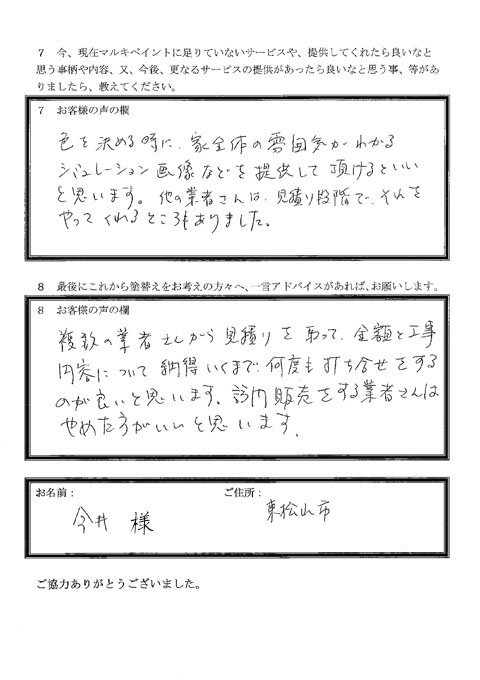 ７ 今、現在マルキペイントに足りていないサービスや、提供してくれたら良いなと
思う事柄や内容、又、今後、更なるサービスの提供があったら良いなと思う事、等があ
りましたら、教えてください。
７ お客様の声の欄
色を決める時に、家全体の雰囲気がわかる
シュレーション画像などを提供して頂けるといい
と思います。他の業者さんは、見積り段階で、それを
やってくれるところもありました。
８ 最後にこれから塗替えをお考えの方々へ、一言アドバイスがあれば、お願いします。
８ お客様の声の欄
複数の業者さんから見積りを取って、金額と工事
内容について納得いくまで何度も打ち合せをする
のが良いと思います。訪問販売をする業者さんは
やめた方がいいと思います。
お名前： ご住所：
今井 様 東松山市
ご協力ありがとうございました。